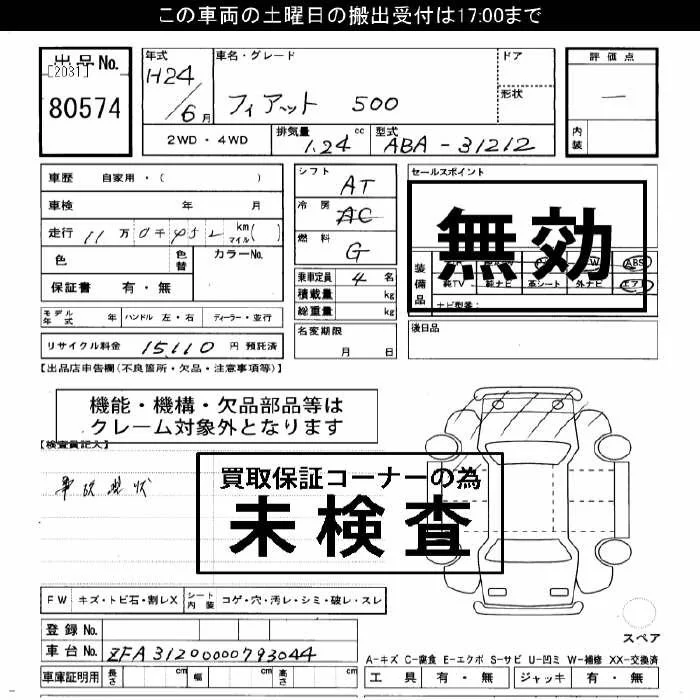 この車両の土曜日の搬出受付は17:00まで
出品No.
[2031]
80574
年式
H24/6月
車名・グレード
フィアット 500
ドア
形状
評価点
―
内装
2WD・4WD
排気量 1.24 cc
型式 ABA-31212
車歴 自家用・( )
車検 年 月
走行 11万0千452 km マイル( )
色
色替
カラーNo.
保証書 有・無
シフト AT
冷房 AC
燃料 G
乗車定員 4 名
積載量 kg
総重量 kg
セールスポイント
無効
装備品
ABS
純TV 純ナビ 革シート 外ナビ エアB
ナビ型番:
モデル年式 年 ハンドル 左・右 ディーラー・並行
リサイクル料金 15,110 円 預託済
名変期限
月 日
後日品
【出品店申告欄(不良箇所・欠品・注意事項等)】
機能・機構・欠品部品等は
クレーム対象外となります
【検査員記入】
事故現状
買取保証コーナーの為
未検査
FW キズ・トビ石・割レX シート内装 コゲ・穴・汚レ・シミ・破レ・スレ
登録No.
車台No. ZFA31200000793044
車庫証明用 長さ cm 幅 cm 高さ cm
スペア
A-キズ C-腐食 E-エクボ S-サビ U-凹ミ W-補修 XX-交換済
工具 有・無 ジャッキ 有・無